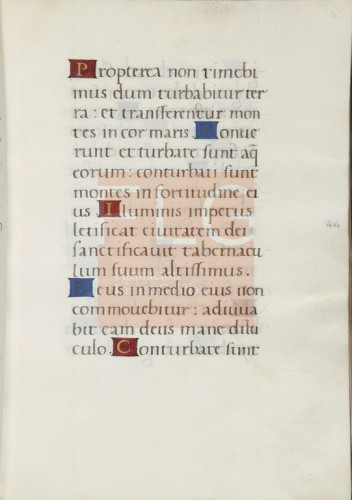 Propterea non timebi
mus dum turbabitur ter
ra: et transferentur mon
tes in cor maris Sonue
runt et turbate sunt aq̃
eorum: conturbati sunt
montes in fortitudine ei
us. Fluminis impetus
letificat civitatem dei
sanctificavit tabernacu
lum suum altissimus.
Deus in medio eius non
commovebitur: adiuva
bit eam deus mane dilu
culo. Conturbate sunt
44
FLC